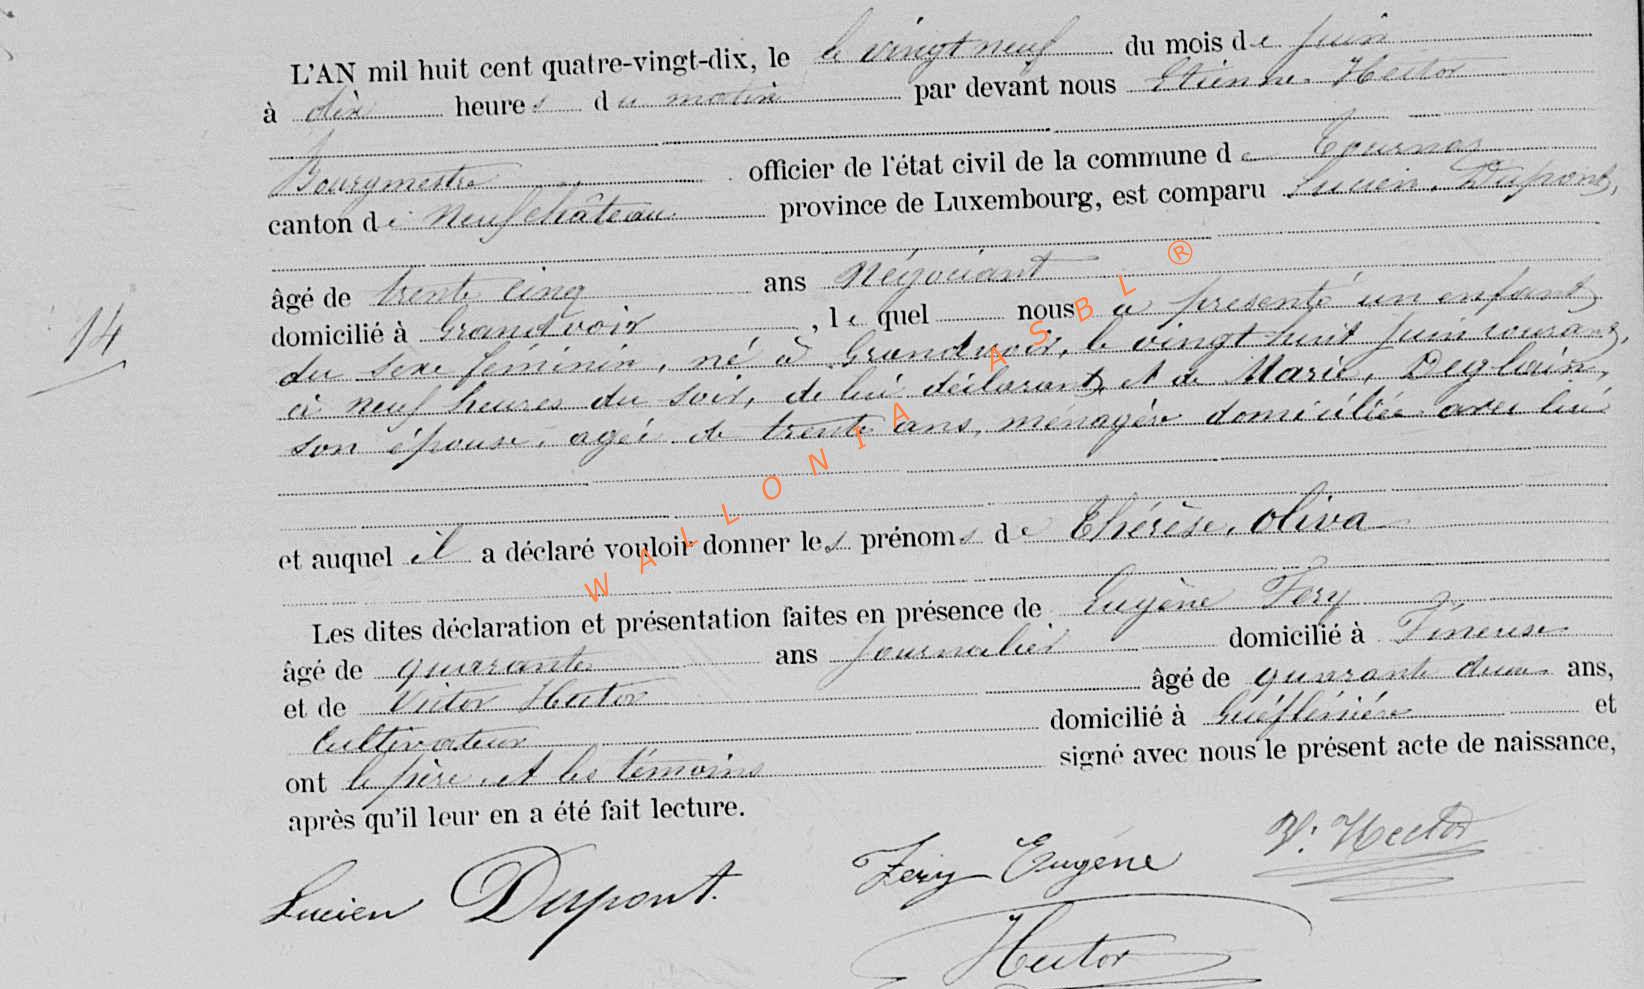 L'AN mil huit cent quatre-vingt-dix, le le vingt neuf du mois de juin
à dix heures du matin par devant nous Etienne Hector
Bourgmestre officier de l'état civil de la commune de Tournay
canton de Neufchâteau province de Luxembourg, est comparu Lucien, Dupont,
âgé de trente cinq ans Négociant
domicilié à Grandvoir, lequel nous a présenté un enfant
du sexe féminin, né à Grandvoir, le vingt huit juin courant,
à neuf heures du soir, de lui déclarant, et de Marie, Deglain,
son épouse, agée de trente ans, ménagère domiciliée avec lui
14
et auquel il a déclaré vouloir donner les prénoms de Thérèse, Oliva
Les dites déclaration et présentation faites en présence de Eugène Fery
âgé de quarante ans journalier domicilié à Tineuse
et de Victor Hector âgé de quarante deux ans,
Cultivateur domicilié à et
ont le père et les témoins signé avec nous le présent acte de naissance,
après qu'il leur en a été fait lecture.
Lucien Dupont. Fery Eugène V. Hector
Hector
WALLONIA ASBL ®